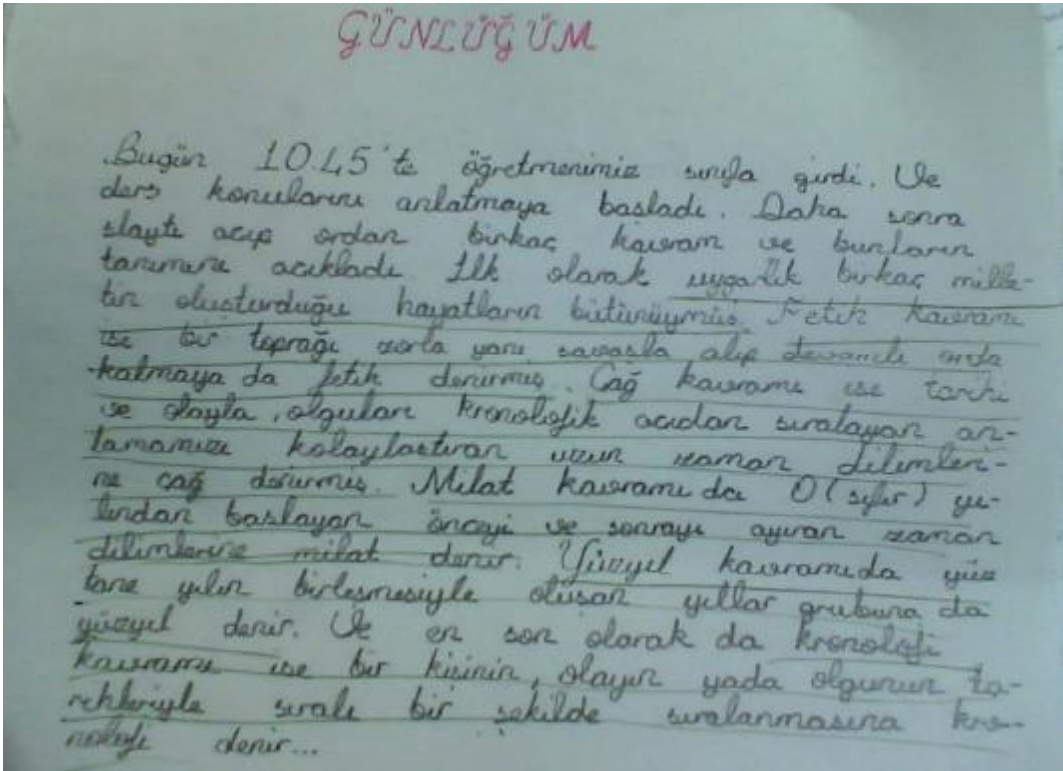 GÜNLÜĞÜM
Bugün 10.45'te öğretmenimiz sınıfa girdi. Ve
ders konularını anlatmaya başladı. Daha sonra
slaytı açıp ordan birkaç kavram ve bunların
tanımını açıkladı. İlk olarak uygarlık birkaç mille-
tin oluşturduğu hayatların bütünüymüş. Fetih kavramı
ise bir toprağı zorla yani savaşla alıp devamlı orda
kalmaya da fetih denirmiş. Çağ kavramı ise tarihi
ve olayla, olguları kronolojik açıdan sıralayan an-
lamamızı kolaylaştıran uzun zaman dilimleri-
ne çağ denirmiş. Milat kavramıda 0 (sıfır) yı-
lından başlayan önceyi ve sonrayı ayıran zaman
dilimlerine milat denir. Yüzyıl kavramıda yüz
tane yılın birleşmesiyle oluşan yıllar grubuna da
yüzyıl denir. Ve en son olarak da kronoloji
kavramı ise bir kişinin, olayın yada olgunun ta-
rihleriyle sıralı bir şekilde sıralanmasına kro-
noloji denir...